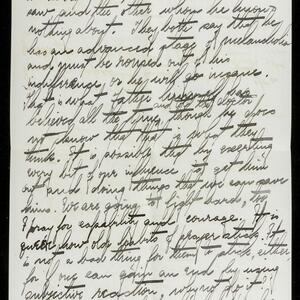 saw and the other whom he knows
nothing about. They both say that he
has an advanced stage of melancholia
and must be worked out of his
indifference or he will go insane.
That is what Father and the doctor
believed all the time though he does
not know that that is what they
think. It is possible that by exerting
every bit of our influence to get him
out and doing things that we can save
him. We are going to fight hard, too.
I pray for capability and courage. It is
queer how old habits of prayer stick. It is
not a bad thing for them to stick, either
for if one can gain an end by using
subjective reaction, why not do it?